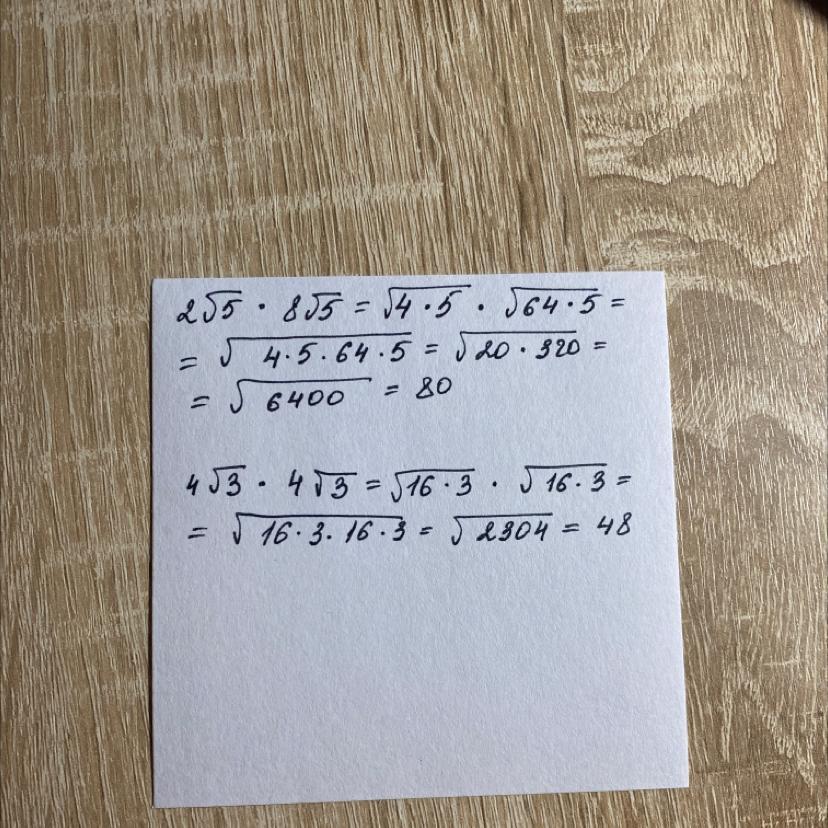 2√5 · 8√5 = √4·5 · √64·5 =
= √4·5·64·5 = √20·320 =
= √6400 = 80
4√3 · 4√3 = √16·3 · √16·3 =
= √16·3·16·3 = √2304 = 48